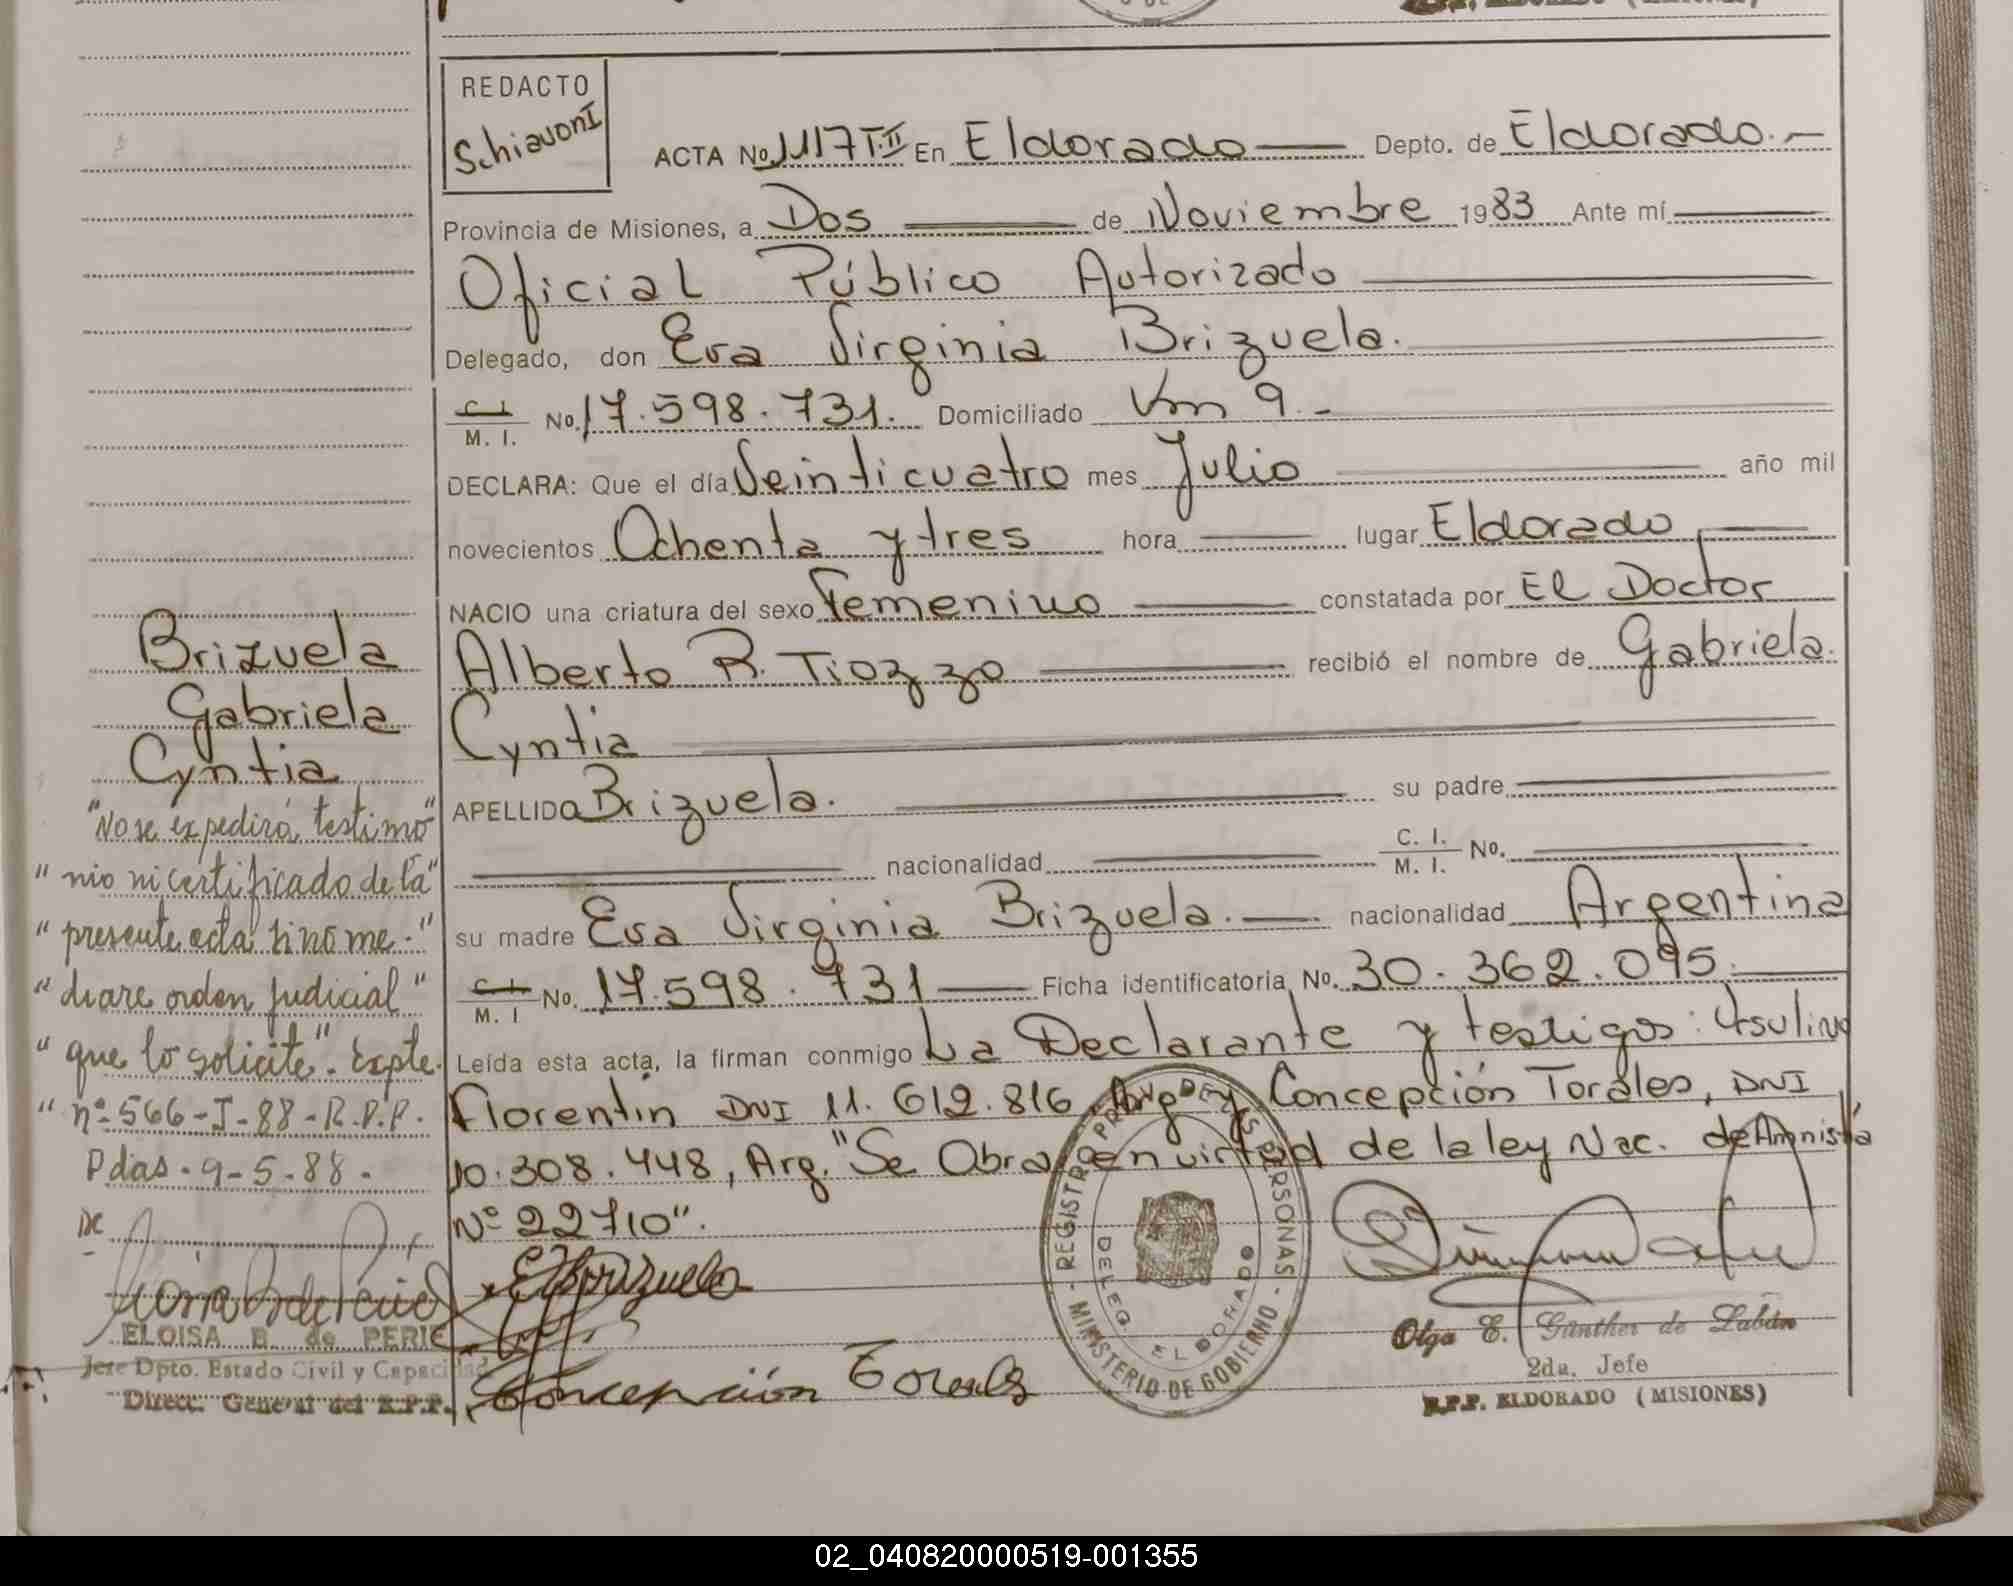 REDACTO
Schiavoni
ACTA No. 1117 T.II En Eldorado Depto. de Eldorado.
Provincia de Misiones, a Dos de Noviembre 1983 Ante mí
Oficial Público Autorizado
Delegado, don Eva Virginia Brizuela.
C. I. M. I. No. 17.598.731. Domiciliado Km 9.-
DECLARA: Que el día Veinticuatro mes Julio año mil
novecientos Ochenta y tres hora lugar Eldorado
NACIO una criatura del sexo Femenino constatada por El Doctor
Alberto R. Tiozzo recibió el nombre de Gabriela
Cyntia
APELLIDO Brizuela. su padre
nacionalidad C. I. M. I. No.
su madre Eva Virginia Brizuela. nacionalidad Argentina
C. I. M. I No. 17.598.731 Ficha identificatoria No. 30.362.095.
Leída esta acta, la firman conmigo La Declarante y testigos:
Florentin DNI 11.612.816, Arg y Concepción Torales, DNI
10.308.448, Arg. "Se Obra en virtud de la ley Nac. de Amnistía
Nº 22710".
Brizuela
Gabriela
Cyntia
"No se expedirá testimo"
"nio ni certificado de la"
"presente acta si no me-"
"diare orden judicial"
"que lo solicite". Expte.
"nº 566-J-88-R.P.P.
Pdas. 9-5-88.
DC
ELOISA B. de PERIE
Jefe Dpto. Estado Civil y Capacidad
Direcc. General del R.P.P.
EVBrizuela
Concepción Torales
REGISTRO PROV. DE LAS PERSONAS
MINISTERIO DE GOBIERNO
DELEG. ELDORADO
Olga E. Günther de Labán
2da. Jefe
R.P.P. ELDORADO (MISIONES)
02_040820000519-001355